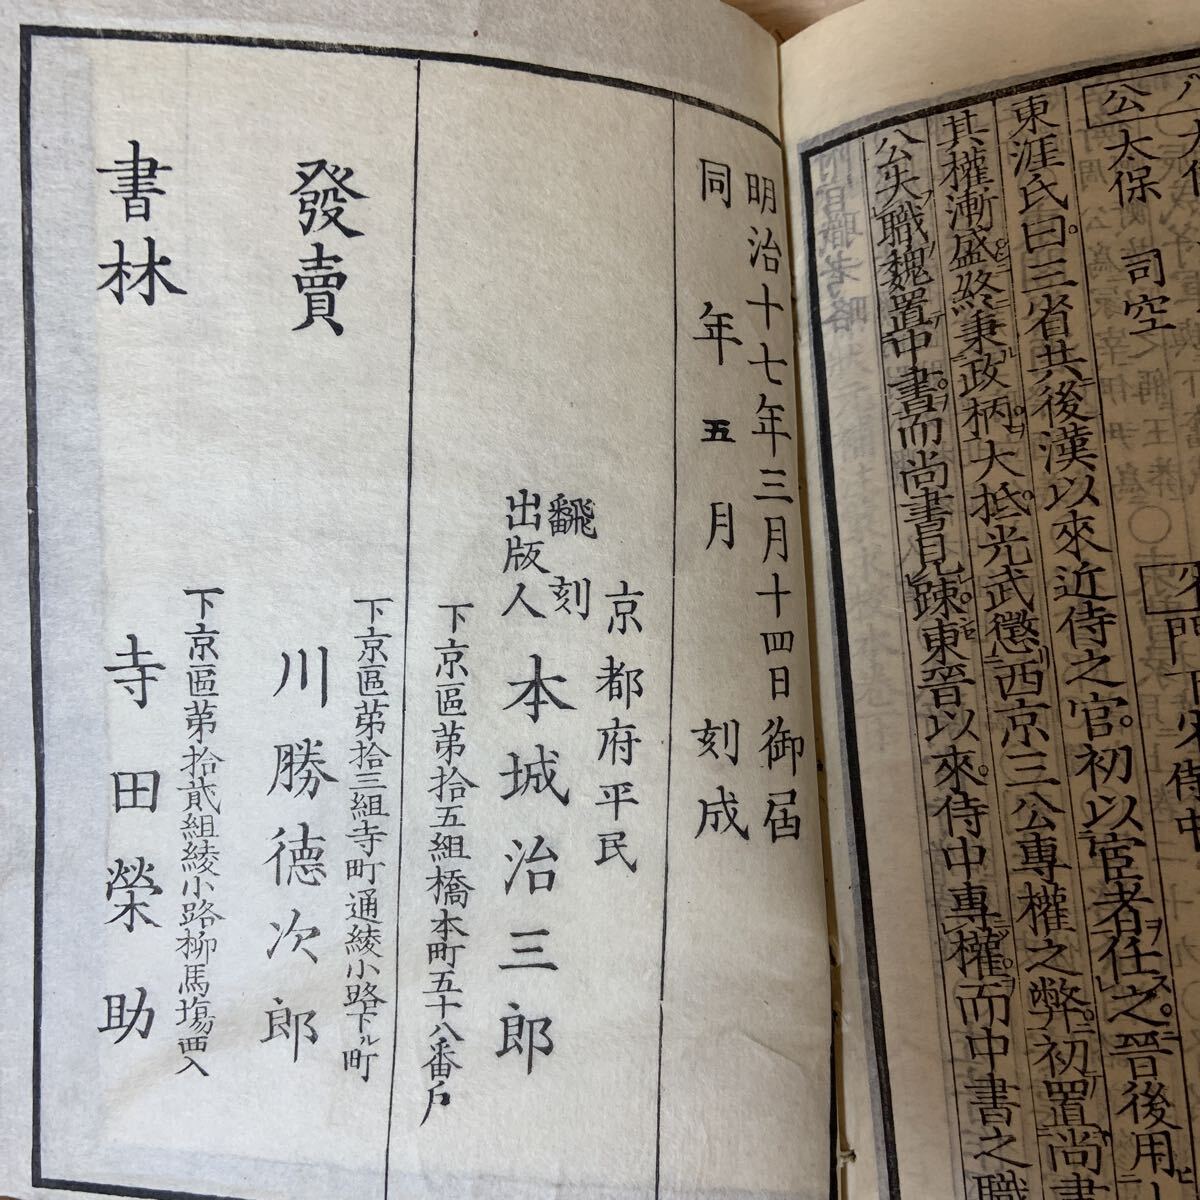 公 太保 司空
東涯氏曰三省共後漢以來近侍之官初以宦者任ヲ之ス晉後用
其權漸盛終秉政柄大抵光武懲西京三公專權之弊初置尚書
公失職魏置中書而尚書見疎東晉以來侍中專權而中書之職
明治十七年三月十四日御届
同年五月刻成
京都府平民
翻刻
出版人 本城治三郎
下京區第拾五組橋本町五十八番戸
發賣
下京區第拾三組寺町通綾小路下ル町
川勝德次郎
書林
下京區第拾貳組綾小路柳馬塲西入
寺田榮助